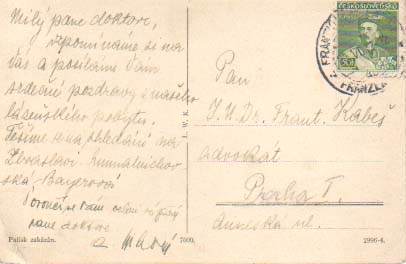 Milý pane doktore,
vzpomínáme si na
Vás a posíláme Vám
srdečné pozdravy z našeho
lázeňského pobytu.
Těšíme se na shledání na
Zbraslavi.
ská, Bayerová
Poroučí se Vám
pane doktore
a
Pan
J.U.Dr. Frant. Kabeš
advokát
Praha I.
Anneská ul.
ČESKOSLOVENSKO
50
FRANZ
J. W. K.
Patisk zakázán.
7000.
2996-4.